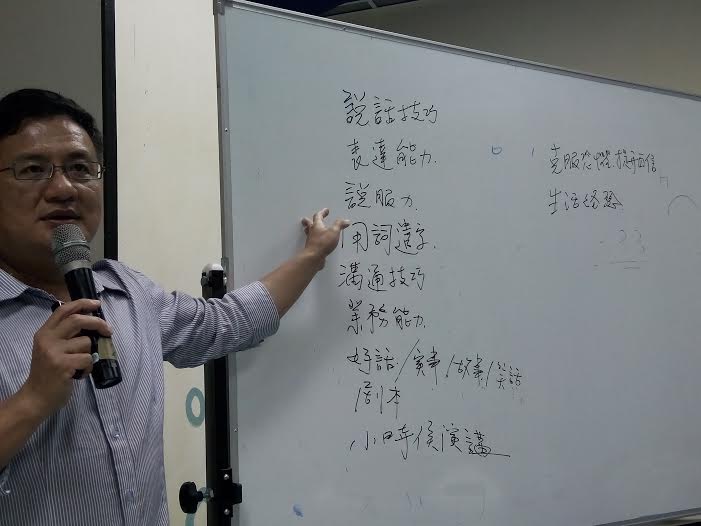 說話技巧
表達能力
說服力
用詞遣字
溝通技巧
業務能力
好話/實事/故事/笑話
劇本
小時侯演講
克服恐懼.提升自信
生活